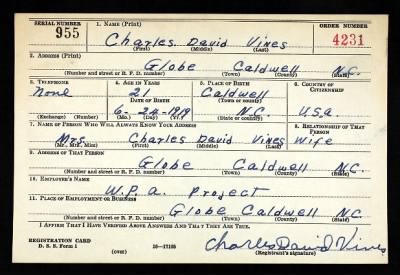 SERIAL NUMBER 1. NAME (Print) ORDER NUMBER
955 Charles David Vines 4231
(First) (Middle) (Last)
2. ADDRESS (Print)
Globe Caldwell N.C.
(Number and street or R. F. D. number) (Town) (County) (State)
3. TELEPHONE 4. AGE IN YEARS 5. PLACE OF BIRTH 6. COUNTRY OF CITIZENSHIP
none 21 Caldwell
DATE OF BIRTH (Town or county)
6-24-1919 N.C. U.S.a.
(Exchange) (Number) (Mo.) (Day) (Yr.) (State or country)
7. NAME OF PERSON WHO WILL ALWAYS KNOW YOUR ADDRESS 8. RELATIONSHIP OF THAT PERSON
Mrs Charles David Vines Wife
(Mr., Mrs., Miss) (First) (Middle) (Last)
9. ADDRESS OF THAT PERSON
Globe Caldwell N.C.
(Number and street or R. F. D. number) (Town) (County) (State)
10. EMPLOYER'S NAME
W.P.a. Project
11. PLACE OF EMPLOYMENT OR BUSINESS
Globe Caldwell N.C.
(Number and street or R. F. D. number) (Town) (County) (State)
I AFFIRM THAT I HAVE VERIFIED ABOVE ANSWERS AND THAT THEY ARE TRUE.
REGISTRATION CARD
D. S. S. Form 1 (over) 16-17105 Charles David Vines
(Registrant's signature)